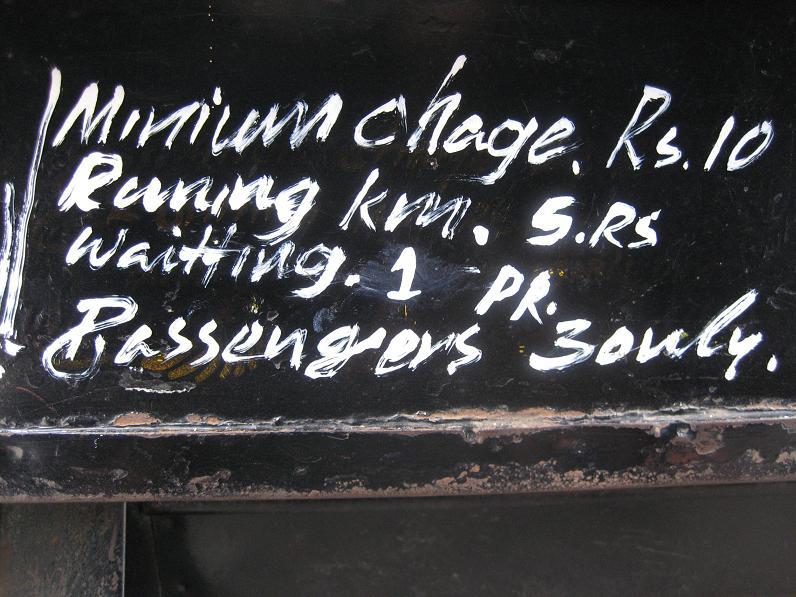 Minium chage. Rs. 10
Runing km. 5.Rs
Waitting. 1 PR.
Passengers 3 only.